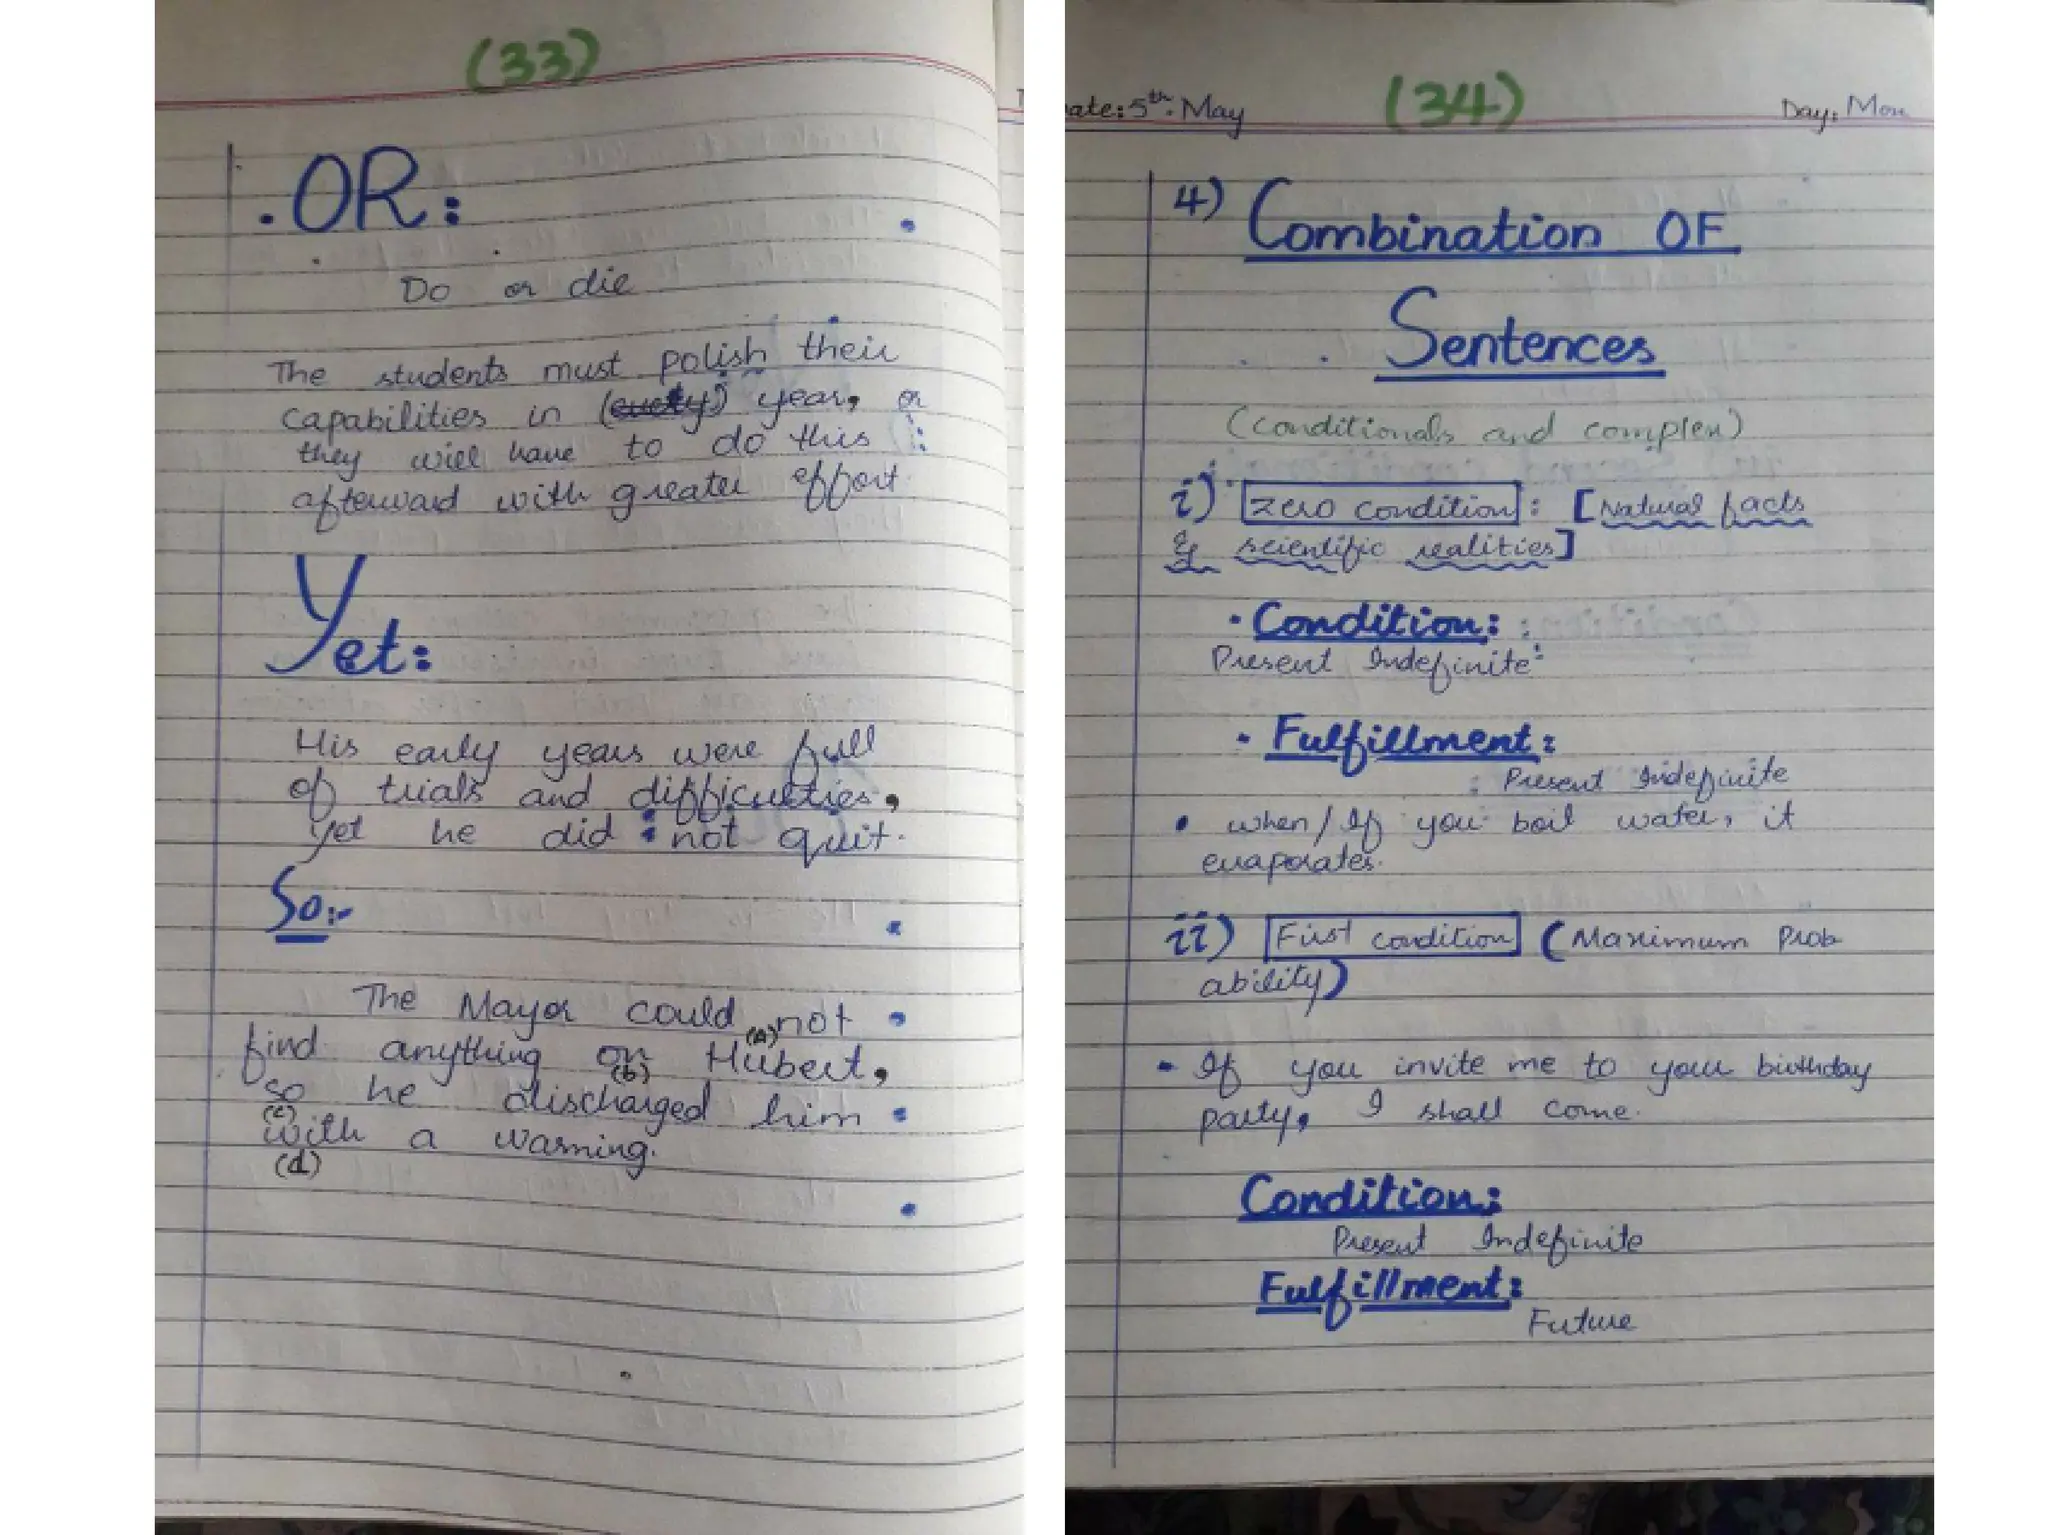 (33)
. OR:
Do or die
The students must polish their
capabilities in (early) year, or
they will have to do this
afterward with greater effort.
Yet:
His early years were full
of trials and difficulties,
yet he did not quit.
So:-
The Mayor could not
(A)
find anything on Hubert,
(b)
so he discharged him
(c)
with a warning.
(d)
ate: 5th. May
(34)
Day: Mon
4) Combination OF
Sentences
(conditionals and complex)
i) zero condition : [Natural facts
& scientific realities]
• Condition:
Present Indefinite
• Fulfillment:
Present Indefinite
• when/If you boil water, it
evaporates.
ii) First condition (Maximum Prob
ability)
- If you invite me to your birthday
party, I shall come.
Condition:
Present Indefinite
Fulfillment:
Future